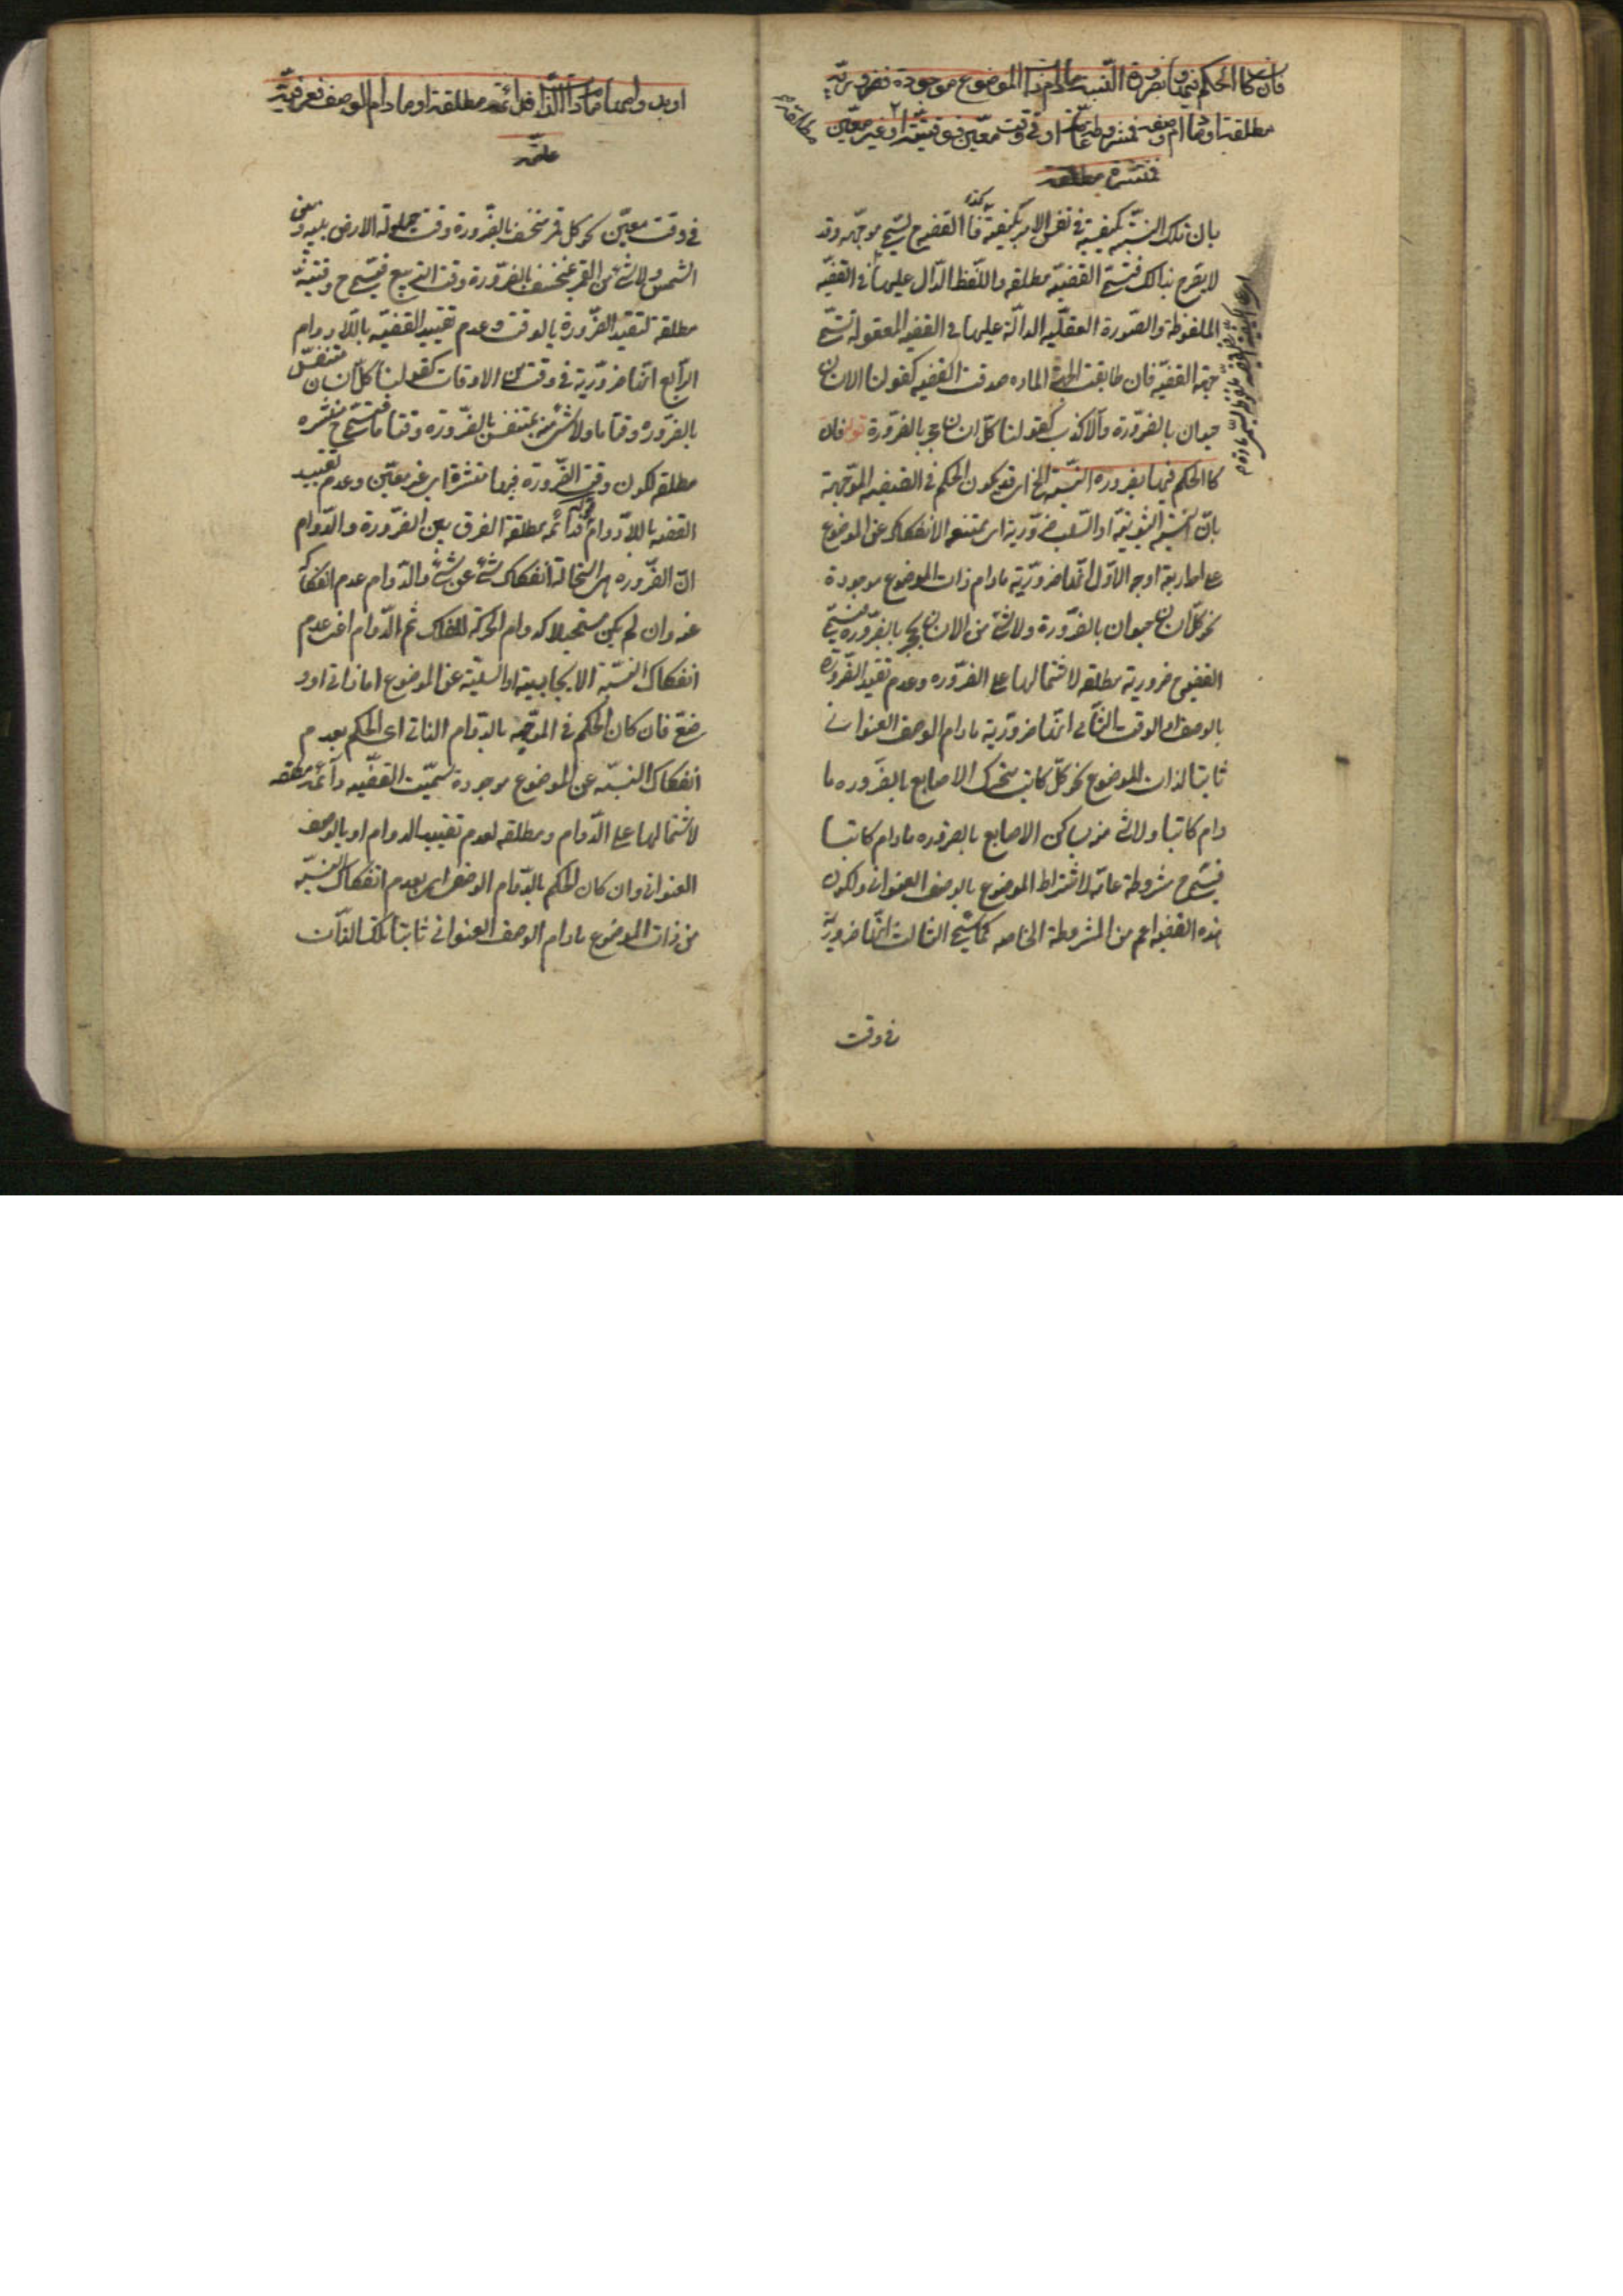 فان كان الحكم فيها بضرورة النسبة ما دام ذات الموضوع موجودة فضرورية
مطلقة او ما دام وصفه فمشروطة عامة او في وقت معين فوقتية مطلقة او غير معين
فمنتشرة مطلقه
بان تلك النسبة مكيفية في نفس الامر بكيفية كذا فالقضية ح تسمى موجهه وقد
لا يصرح بذالك فتسمى القضيه مطلقه واللفظ الدال عليها في القضيه
الملفوظة والصورة العقليه الدالة عليها في القضيه المعقوله تسمى
جهة القضيه فان طابقت الجهة الماده صدقت القضيه كقولنا الانسان
حيوان بالضرورة والا كذبت كقولنا كل انسان حجر بالضرورة قوله فان
كان الحكم فيها بضرورة النسبة الخ اي قد يكون الحكم في القضيه الموجهة
بان النسبة الثبوتية او السلبية ضرورية اى ممتنعه الانفكاك عن الموضوع
على اربعة اوجه الاول انها ضرورية ما دام ذات الموضوع موجودة
نحو كل انسان حيوان بالضرورة ولا شئ من الانسان بحجر بالضرورة فتسمى
القضيه ح ضرورية مطلقه لاشتمالها على الضروره وعدم تقييد الضرورة
بالوصف او الوقت الثاني انها ضرورية ما دام الوصف العنواني
ثابتا لذات الموضوع نحو كل كاتب متحرك الاصابع بالضروره ما
دام كاتبا ولا شئ منه بساكن الاصابع بالضروره ما دام كاتبا
فتسمى ح مشروطة عامة لاشتراط الموضوع بالوصف العنواني ولكون
هذه القضيه اعم من المشروطة الخاصه كما سيجئ الثالث انها ضرورية
في وقت
او بدوامها ما دام الذات فدائمة مطلقة او ما دام الوصف فعرفية
عامة
في وقت معين نحو كل قمر منخسف بالضرورة وقت حيلولة الارض بينه وبين
الشمس ولا شئ من القمر بمنخسف بالضرورة وقت التربيع فتسمى ح وقتية
مطلقة لتقييد الضرورة بالوقت وعدم تقييد القضيه باللادوام
الرابع انها ضرورية في وقت من الاوقات كقولنا كل انسان متنفس
بالضروره وقتا ما ولا شئ منه بمتنفس بالضروره وقتا ما فتسمى ح منتشره
مطلقه لكون وقت الضرورة فيها منتشرة اى غير معين وعدم تقييد
القضيه باللادوام قوله فدائمه مطلقة الفرق بين الضرورة والدوام
ان الضروره هى استحالة انفكاك شئ عن شئ والدوام عدم انفكاكه
عنه وان لم يكن مستحيلا كدوام الحركة للفلك ثم الدوام اعنى عدم
انفكاك النسبة الايجابية او السلبية عن الموضوع اما ذاتي او و
صفي فان كان الحكم في الموجهه بالدوام الذاتي اى الحكم بعدم
انفكاك النسبه عن الموضوع موجودة سميت القضيه دائمة مطلقه
لاشتمالها على الدوام ومطلقه لعدم تقييد الدوام او بالوصف
العنواني وان كان الحكم بالدوام الوصفي اى بعدم انفكاك النسبه
من ذات الموضوع ما دام الوصف العنواني ثابتا لتلك الذات